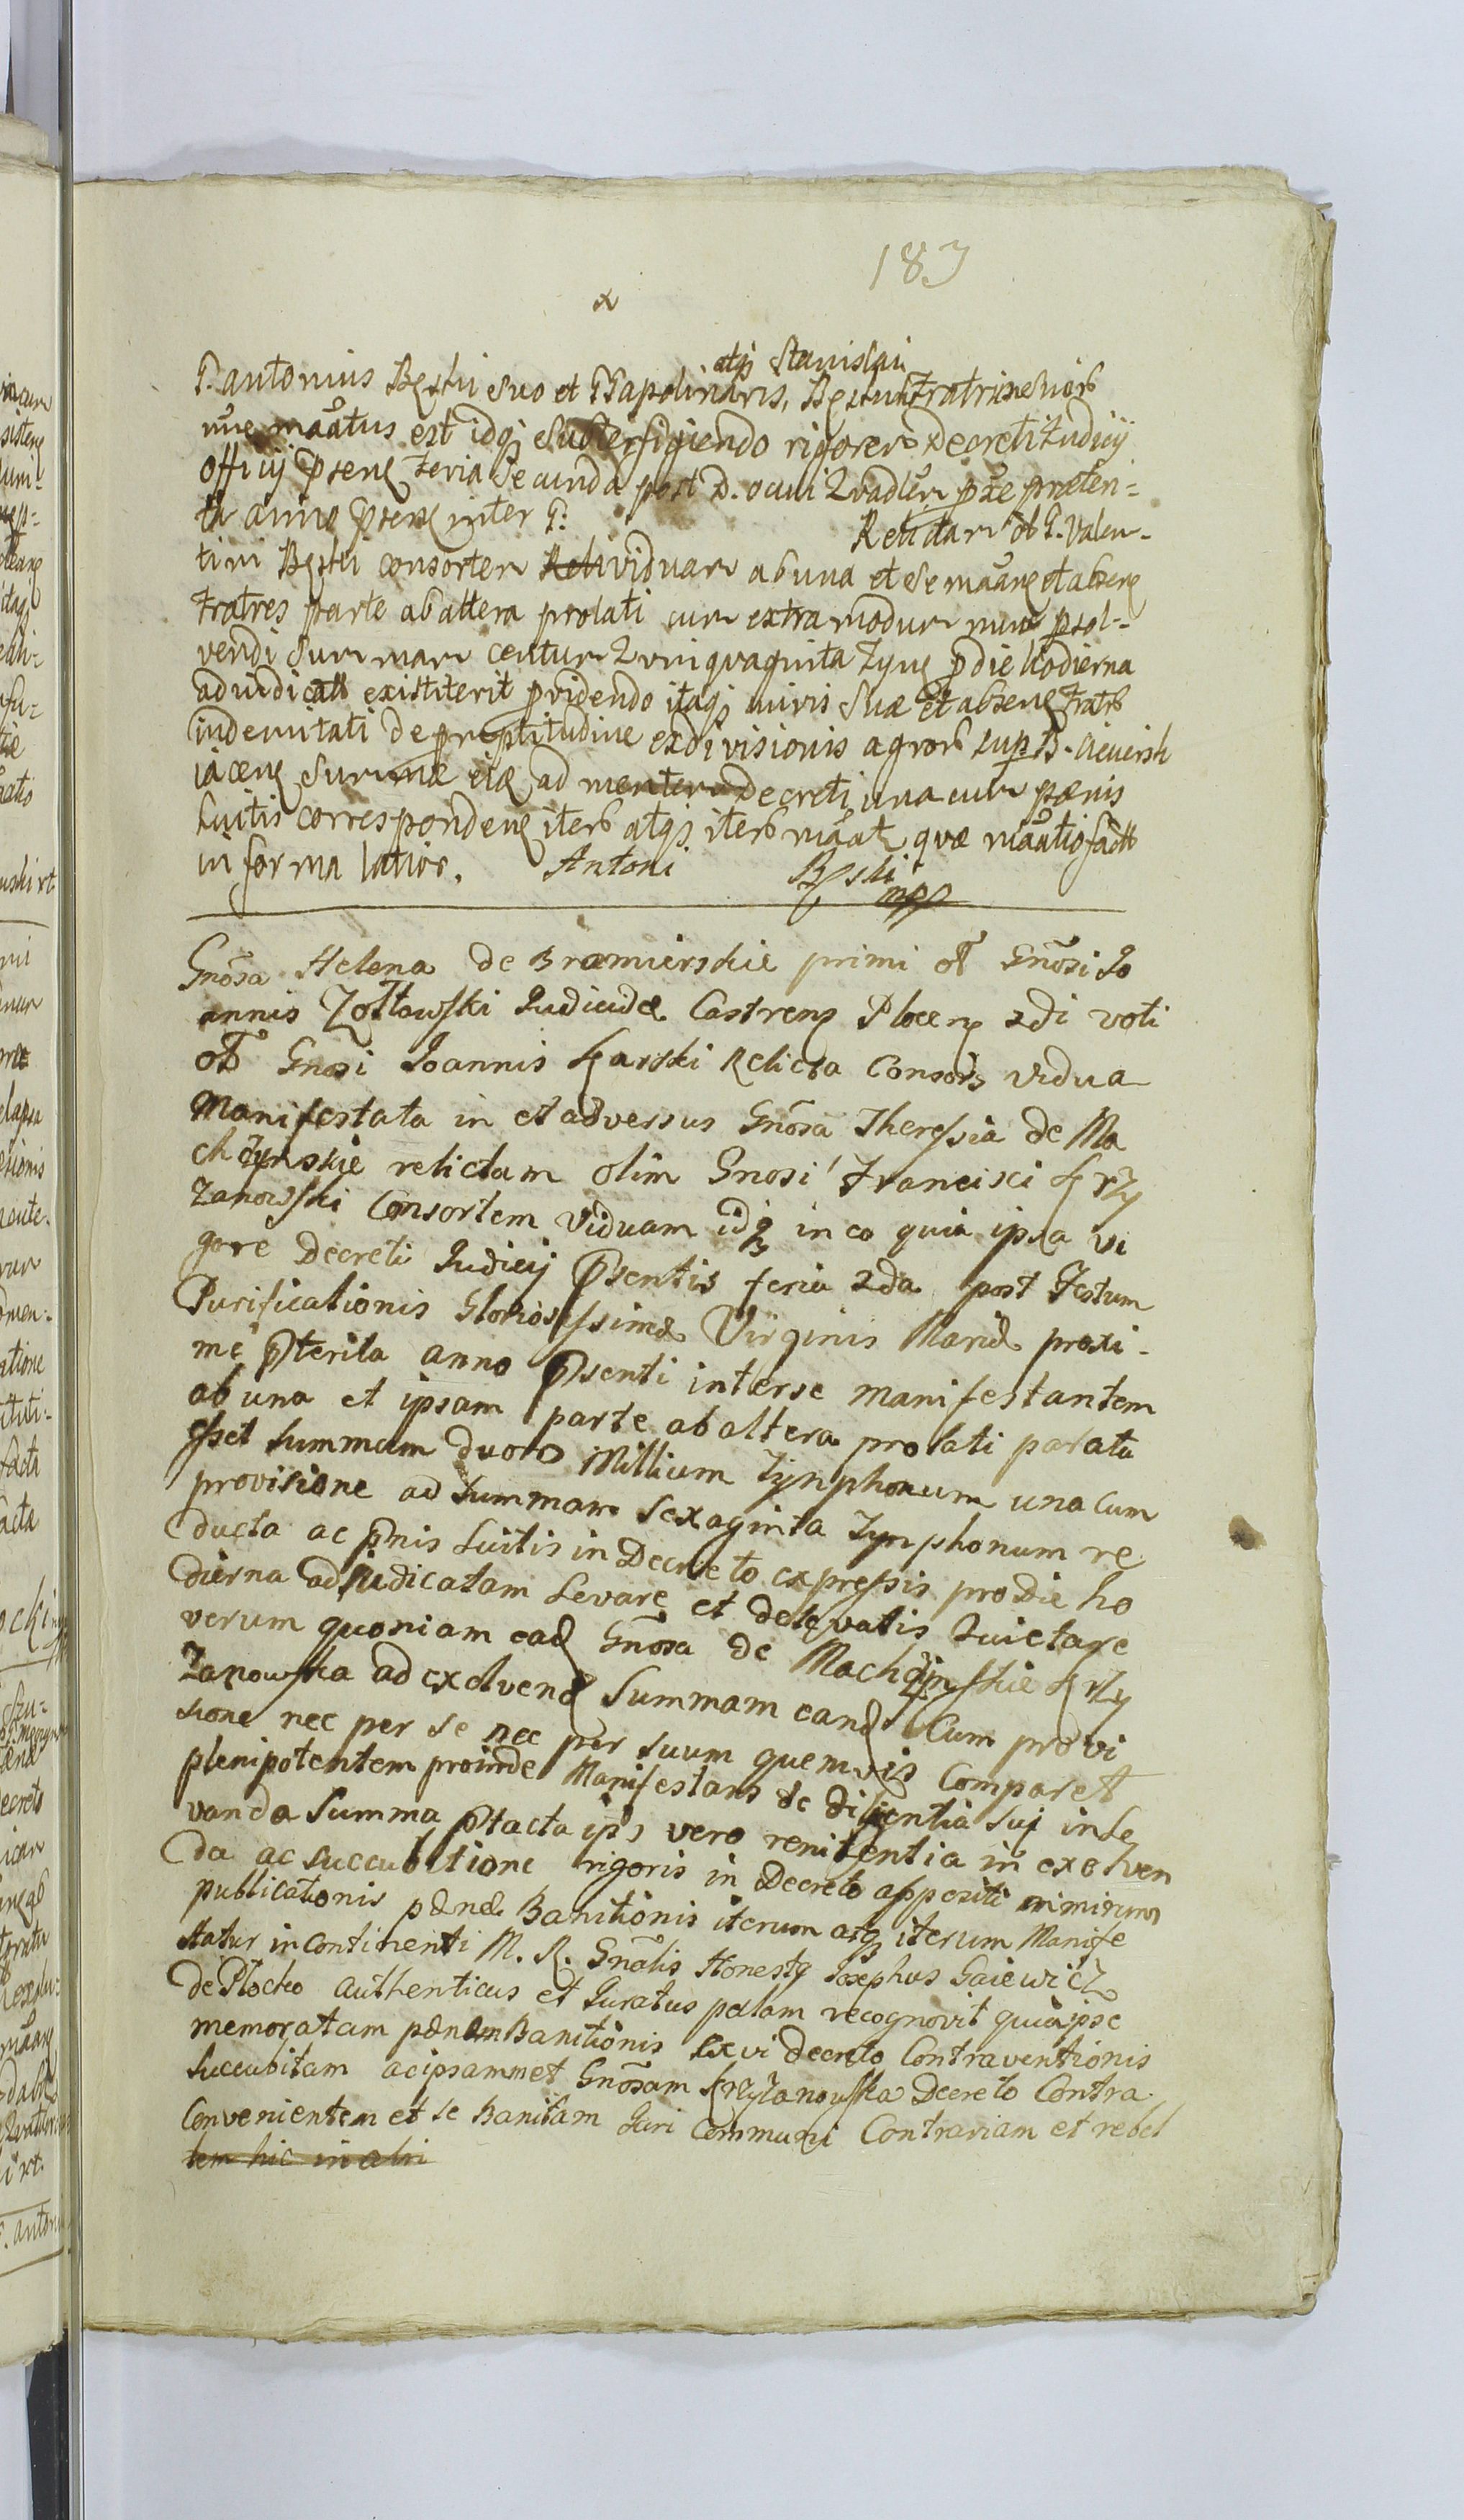 183
x
atq Stanislai
G. antonius Bęski suo et GG apolinaris, Bęskich Fratrum Suorb
nne maatus est idq Subterfugiendo rigorem Decreti Judicij
Officij psenς feria Secunda post D. oculi Quadlem pxe præten=
ta anno psenς inter G:
Relictam ol G. Valen=
tini Bęski consortem viduam ab una et Se maanς et absenς
Fratres parte ab altera prolati cum extra modum nune psol=
vendi Summam centum Quinquaginta Tynς p die hodierna
adiudicatt existiterit pvidendo itaq iuris Suæ et absenς fratrb
indemnitati de promptitudine exdivisionis agrorb sup B.
iacenς Summæ eiς ad mentem Decreti una cum pænis
luitis correspondenς iterb atqs iterb maat quæ maatio facta
in forma latior. Antoni Bęski
mpp
Gnosa Helena de Bromierskie primi ol Gnosi Jo
annis Zołtowski Judicidæ Castrens Plocens 2di voti
ol Gnosi Joannis Karski Relicta Consors vidua
Manifestata in et adversus Gnosa Theressia de Ma
chczynskie relictam olim Gnosi Francisci Krzy
zanowski Consortem Viduam idq in eo quia ipsa vi
gore Decreti Judicij Psentis feria 2da post Festum
Purificationis Gloriosissimæ Virginis Mariæ proxi-
me Pterita anno Psenti inter se manifestantem
ab una et ipsam parte ab altera prolati parata
esset summam duorb Millium Tynphonum una cum
provisione ad summam sexaginta Tynphonum re
ducta ac pnis luitis in Decreto expressis pro die ho
dierna adjudicatam levare et de levatis Quietare
verum quoniam ead Gnosa de Machczynskie Krzy
zanowska ad exolvend Summam eand Cum provi
sione nec per se nec per suum quemvis Comparet
plenipotentem proinde Manifestans de diligentia sui in le
vanda Summa Ptacta ips vero renitentia in exolven
da ac succubitione rigoris in Decreto appositi nimirum
publicationis pænæ Banitionis iterum atq iterum Manife
statur in continenti M. R. Gnalis Honestq Josephus Gaiewicz
de Plocko authenticus et Juratus palam recognovit quia ipse
memoratam pænam Banitionis ex vi decreto Contraventionis
succubitam ac ipsammet Gnosam Krzyzanowska Decreto Contra
Convenientem et se banitam Juri Communi Contrariam et rebel
tem hic in